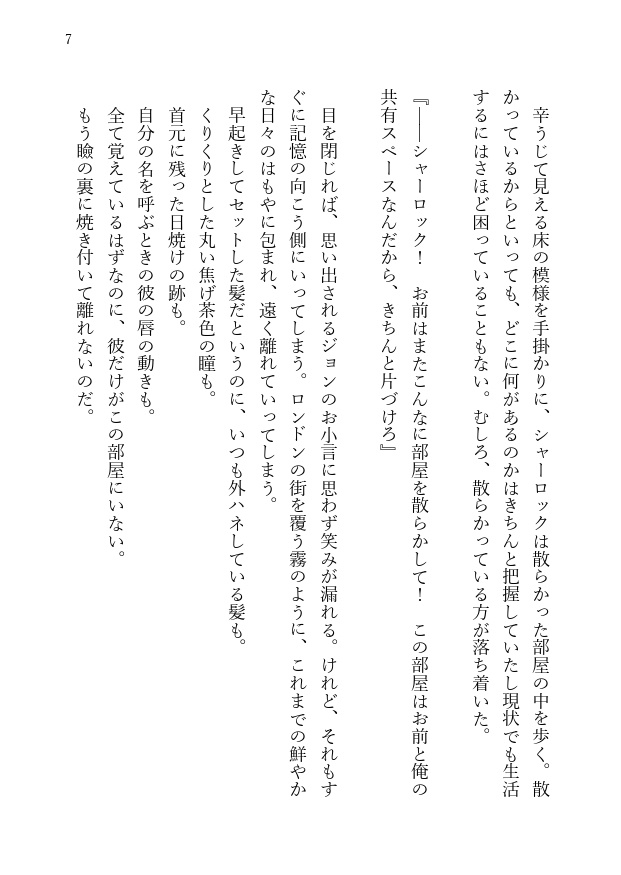 7
　辛うじて見える床の模様を手掛かりに、シャーロックは散らかった部屋の中を歩く。散
かっているからといっても、どこに何があるのかはきちんと把握していたし現状でも生活
するにはさほど困っていることもない。むしろ、散らかっている方が落ち着いた。
『――シャーロック！　お前はまたこんなに部屋を散らかして！　この部屋はお前と俺の
共有スペースなんだから、きちんと片づけろ』
　目を閉じれば、思い出されるジョンのお小言に思わず笑みが漏れる。けれど、それもす
ぐに記憶の向こう側にいってしまう。ロンドンの街を覆う霧のように、これまでの鮮やか
な日々のはもやに包まれ、遠く離れていってしまう。
　早起きしてセットした髪だというのに、いつも外ハネしている髪も。
　くりくりとした丸い焦げ茶色の瞳も。
　首元に残った日焼けの跡も。
　自分の名を呼ぶときの彼の唇の動きも。
　全て覚えているはずなのに、彼だけがこの部屋にいない。
　もう瞼の裏に焼き付いて離れないのだ。